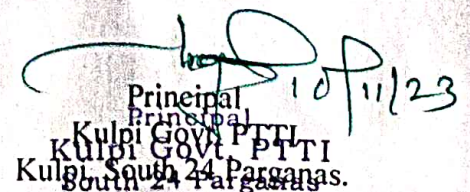 10/11/23
Principal
Principal
Kulpi Govt. PTTI
Kulpi Govt. PTTI
Kulpi, South 24 Parganas.
South 24 Parganas